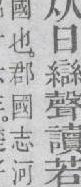 从日䜌聲讀若
國也。郡國志河